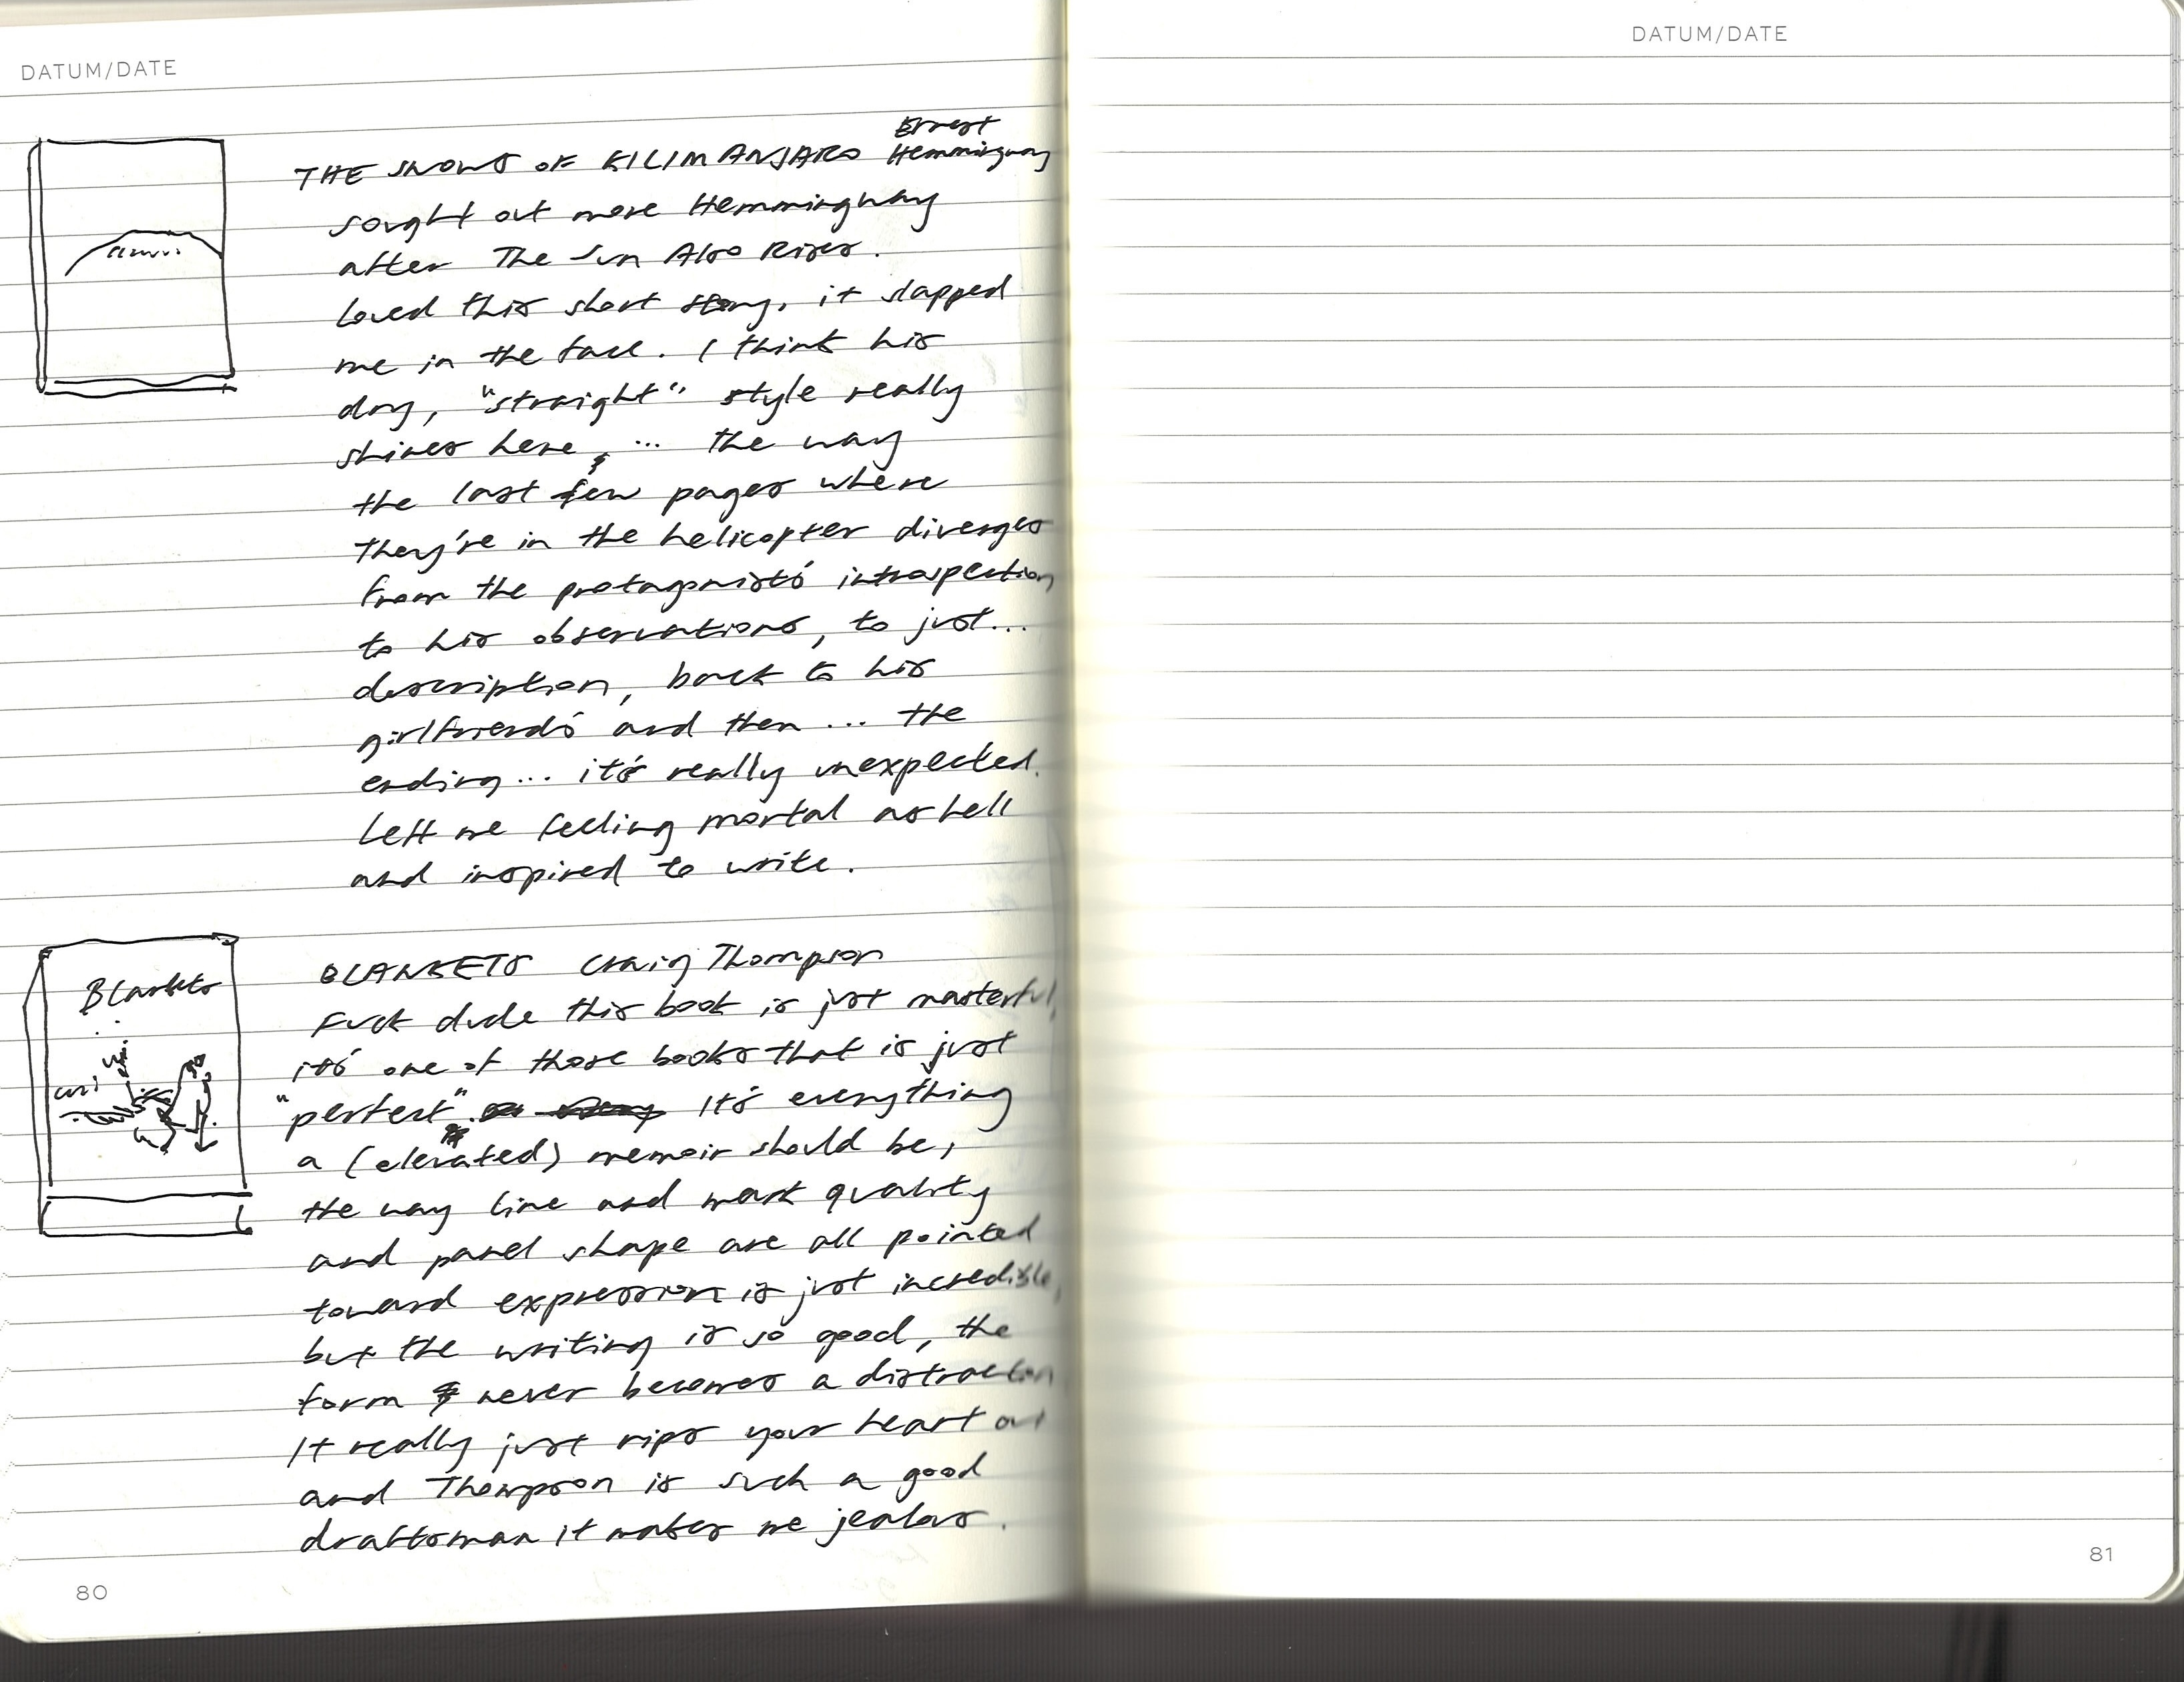 DATUM/DATE
THE SNOWS OF KILIMANJARO Ernest Hemmingway
sought out more Hemmingway
after The Sun Also Rises.
loved this short story, it slapped
me in the face. I think his
dry, "straight" style really
shines here, ... the way
the last few pages where
they're in the helicopter diverges
from the protagonist's introspection
to his observations, to just...
description, back to his
girlfriend's and then ... the
ending... it's really unexpected.
Left me feeling mortal as hell
and inspired to write.
Blankets
BLANKETS Craig Thompson
Fuck dude this book is just masterful,
it's one of those books that is just
"perfect". It's everything
a (elevated) memoir should be,
the way line and mark quality
and panel shape are all pointed
toward expression is just incredible,
but the writing is so good, the
form never becomes a distraction
It really just rips your heart out
and Thompson is such a good
draftsman it makes me jealous.
80
DATUM/DATE
81